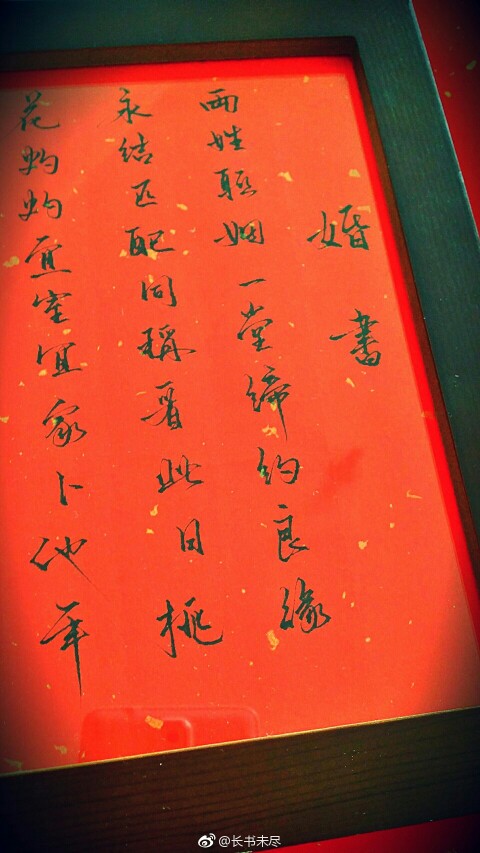 婚書
兩姓聯姻一堂締約良緣
永結匹配同稱看此日桃
花灼灼宜室宜家卜他年
@长书未尽